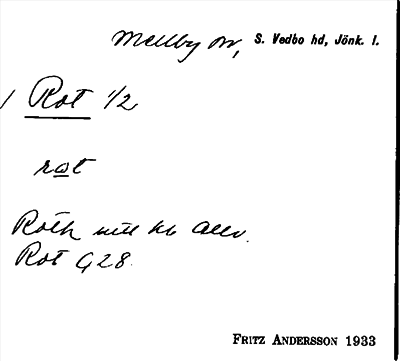 Mellby sn, S. Vedbo hd, Jönk. l.
/ Rot 1/2
rot
Roth
Rot G 28.
FRITZ ANDERSSON 1933